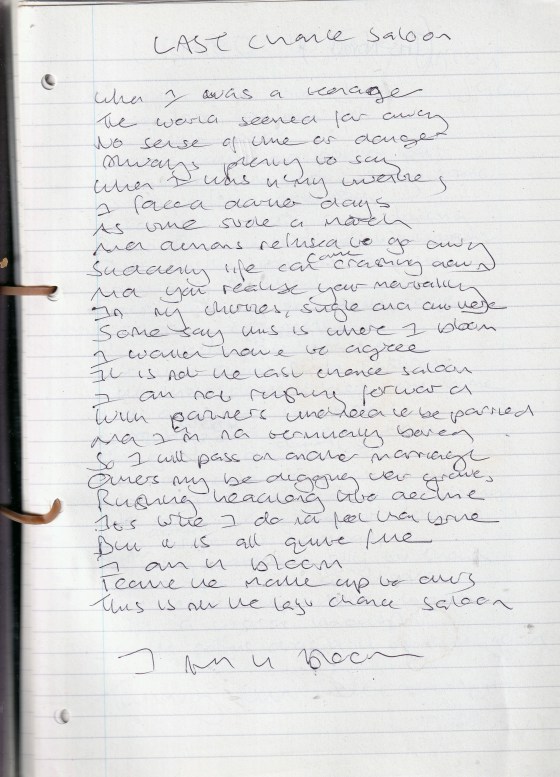 LAST chance saloon
When I was a teenager
The world seemed far away
No sense of time or danger
Always plenty to say
When I was in my twenties
I faced darker days
As time stole a march
And demons refused to go away
Suddenly life came crashing down
And you realise your mortality
In my thirties, single and
Some say this is where I bloom
I would have to agree
It is not the last chance saloon
I am not rushing forward
With partners to be parried
And I'm not terminally bored
So I will pass on another marriage
Others may be digging their graves
Rushing headlong into decline
It's true I do not feel that brave
But it is all quite fine
I am in bloom
Leave the make up to
This is not the last chance saloon
I am in bloom